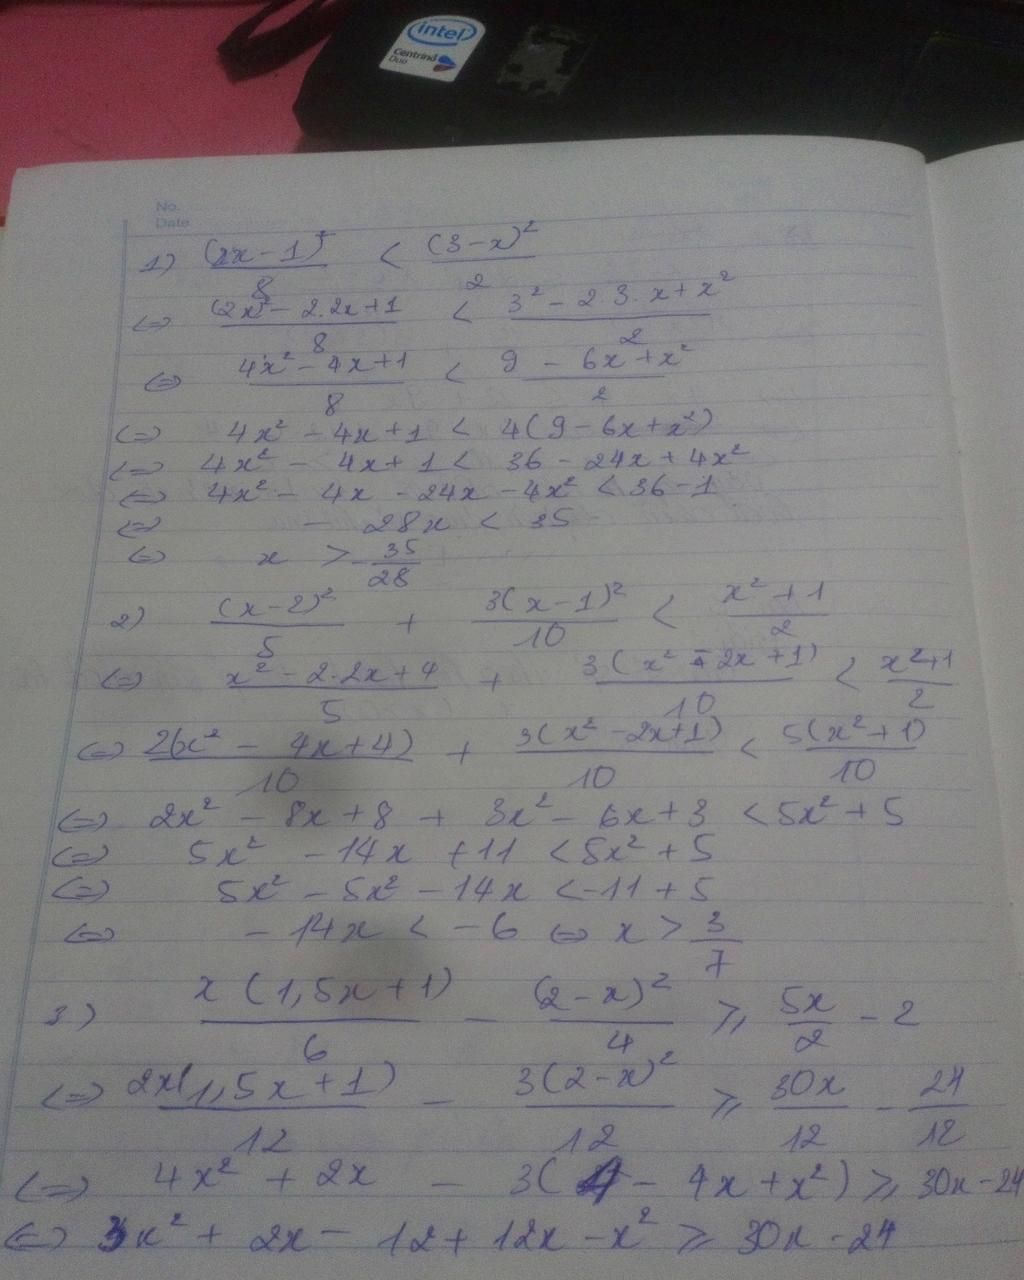 intel
Centrino
Duo
No.
Date
1) (2x-1)²/8 < (3-x)²/2
<=> (2x)²- 2.2x+1/8 < 3² - 2.3.x+x²/2
<=> 4x² - 4x+1/8 < 9 - 6x+x²/2
<=> 4x² - 4x+1 < 4(9-6x+x²)
<=> 4x² - 4x+1 < 36 - 24x + 4x²
<=> 4x² - 4x - 24x - 4x² < 36-1
<=> - 28x < 35
<=> x > -35/28
2) (x-2)²/5 + 3(x-1)²/10 < x²+1/2
<=> x² - 2.2x+4/5 + 3(x² - 2x+1)/10 < x²+1/2
<=> 2(x² - 4x+4)/10 + 3(x² -2x+1)/10 < 5(x²+1)/10
<=> 2x² - 8x+8 + 3x² - 6x+3 < 5x² + 5
<=> 5x² - 14x + 11 < 5x² + 5
<=> 5x² - 5x² - 14x < -11 + 5
<=> - 14x < - 6 <=> x > 3/7
3) x(1,5x+1)/6 - (2-x)²/4 ≥ 5x/2 - 2
<=> 2x(1,5x+1)/12 - 3(2-x)²/12 ≥ 30x/12 - 24/12
<=> 4x² + 2x - 3(4 - 4x+x²) ≥ 30x-24
<=> 3x² + 2x - 12 + 12x - x² ≥ 30x - 24